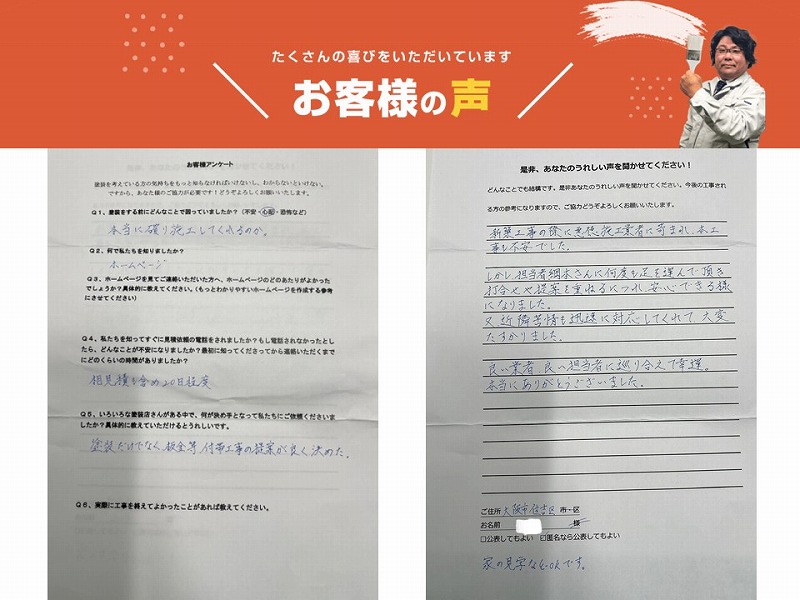 たくさんの喜びをいただいています
お客様の声
お客様アンケート
塗装を考えている方の気持ちをもっと知らなければいけないし、わからないといけない。
ですから、あなた様のご協力が必要です！どうぞよろしくお願いいたします。
Q１、塗装をする前にどんなことで困っていましたか？（不安・心配・恐怖など）
本当に確り施工してくれるのか。
Q２、何で私たちを知りましたか？
ホームページ
Q３、ホームページを見てご連絡いただいた方へ、ホームページのどのあたりがよかった
でしょうか？具体的に教えてください。（もっとわかりやすいホームページを作成する参考
にさせてください）
Q４、私たちを知ってすぐに見積依頼の電話をされましたか？もし電話されなかったとし
たら、どんなことが不安になりましたか？最初に知ってくださってから連絡いただくまで
にどのくらいの時間がありましたか？
相見積も含め20日程度
Q５、いろいろな塗装店さんがある中で、何が決め手となって私たちにご依頼くださいま
したか？具体的に教えていただけるとうれしいです。
塗装だけでなく、板金等、付帯工事の提案が良く決めた。
Q６、実際に工事を終えてよかったことがあれば教えてください。
是非、あなたのうれしい声を聞かせてください！
どんなことでも結構です。是非あなたのうれしい声を聞かせてください。今後の工事され
る方の参考になりますので、ご協力どうぞよろしくお願いします。
新築工事の際に悪徳施工業者に苛まれ、本工
事も不安でした。
しかし、担当者細木さんに何度も足を運んで頂き
打合せや提案を重ねるにつれ、安心できる様
になりました。
又、近隣苦情も迅速に対応してくれて、大変
たすかりました。
良い業者、良い担当者に巡り合えて幸運。
本当にありがとうございました。
ご住所 大阪市住吉区 市・区
お名前 様
□公表してもよい ☑匿名なら公表してもよい
家の見学などOKです。